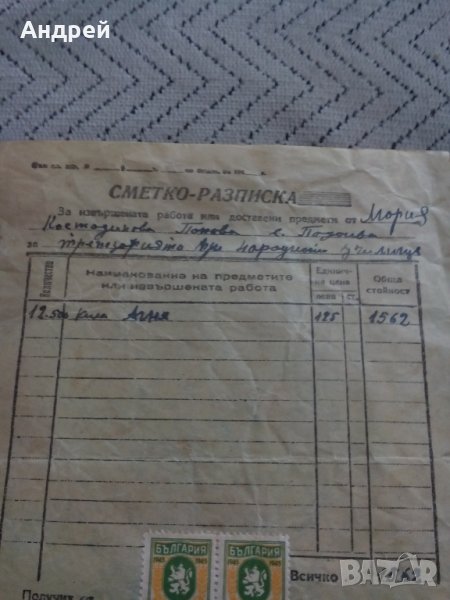 Андрей
СМЕТКО-РАЗПИСКА
За извършената работа или доставени предмети от Мария
Костадинова Попова с.
за трапезарията при народното училище
Количество
Наименование на предметите
или извършената работа
Единич-
на цена
лева
ст.
Обща
стойност
12.500 кила Агня 125 1562
БЪЛГАРИЯ
1945 1945
БЪЛГАРИЯ
1945 1945
Всичко
Получих от
Bazar.bg